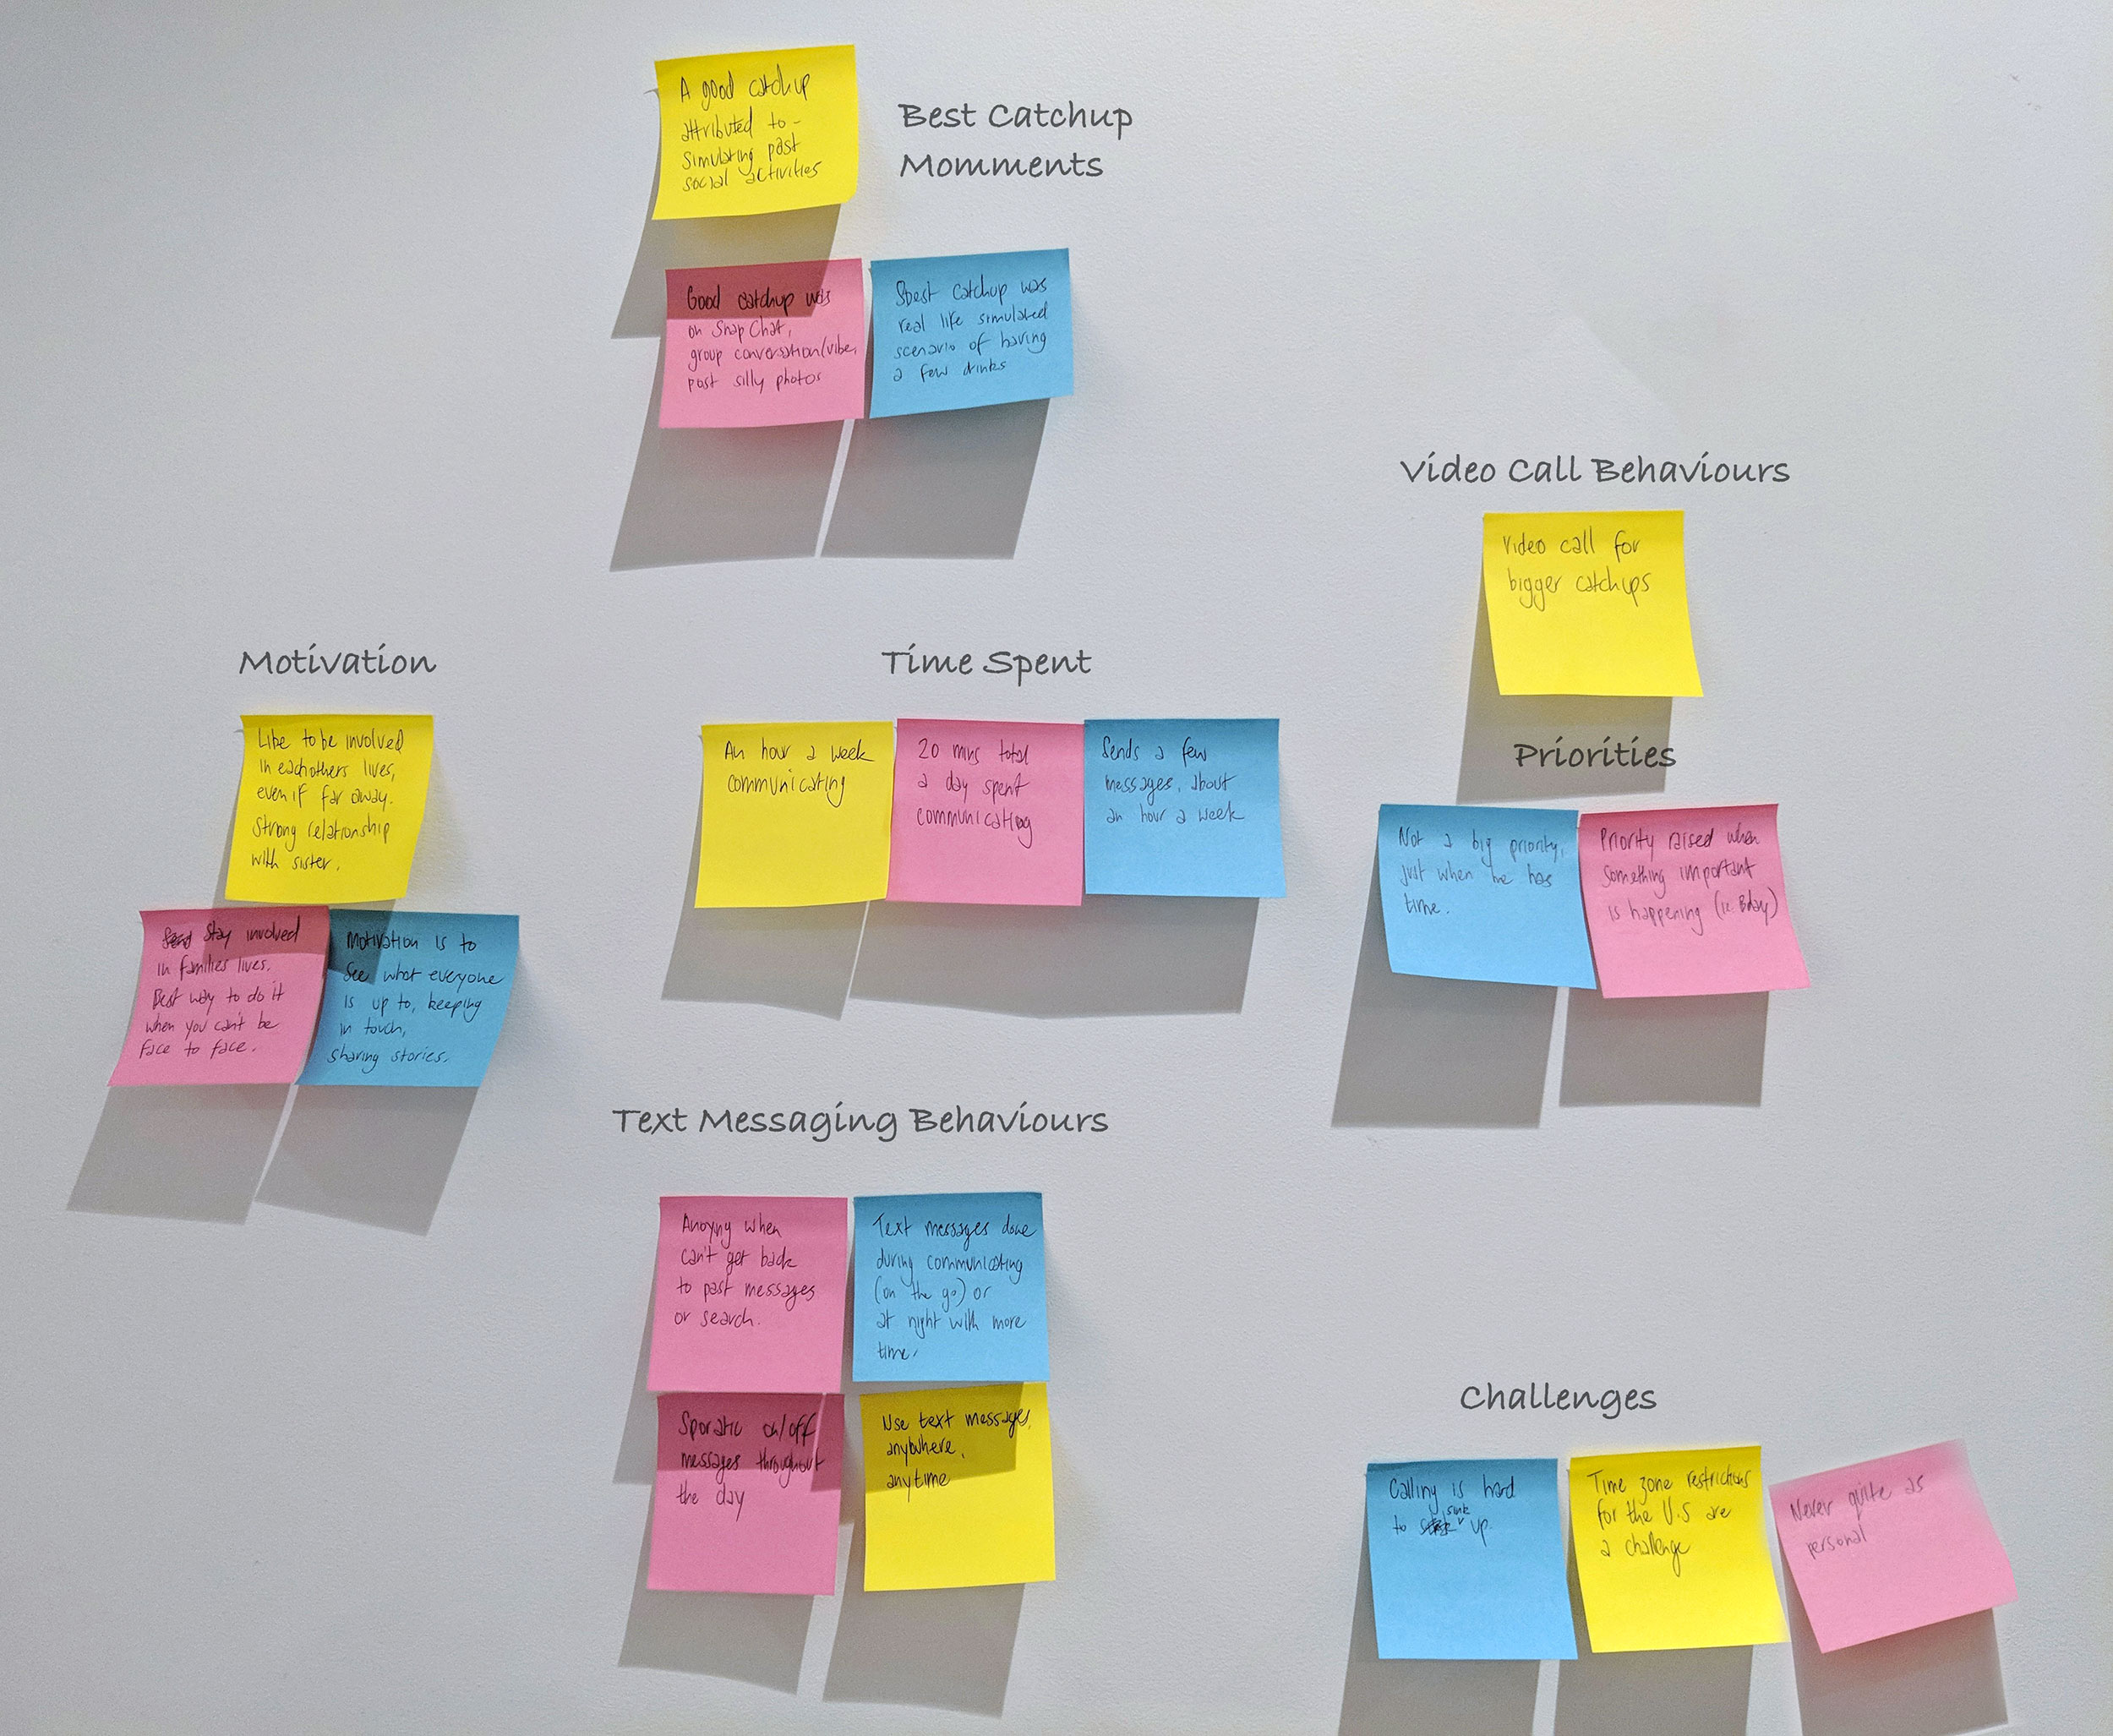 A good catchup
attributed to -
simulating past
social activities
Best Catchup
Momments
Good catchup was
on Snap Chat,
group conversation/vibe,
past silly photos
best catchup was
real life simulated
scenario of having
a few drinks
Video Call Behaviours
Video call for
bigger catchups
Motivation
Like to be involved
in eachothers lives,
even if far away.
Strong relationship
with sister.
Stay involved
in families lives.
Best way to do it
when you can't be
face to face.
Motivation is to
see what everyone
is up to, keeping
in touch,
sharing stories.
Time Spent
An hour a week
communicating
20 mins total
a day spent
communicating
Sends a few
messages, about
an hour a week
Priorities
Not a big priority,
just when he has
time.
Priority raised when
something important
is happening (ie. Bday)
Text Messaging Behaviours
Anoying when
can't get back
to past messages
or search.
Text messages done
during communicating
(on the go) or
at night with more
time.
Sporatic on/off
messages throughout
the day
Use text messages,
anywhere,
anytime
Challenges
Calling is hard
to sink up.
Time zone restrictions
for the U.S are
a challenge
Never quite as
personal